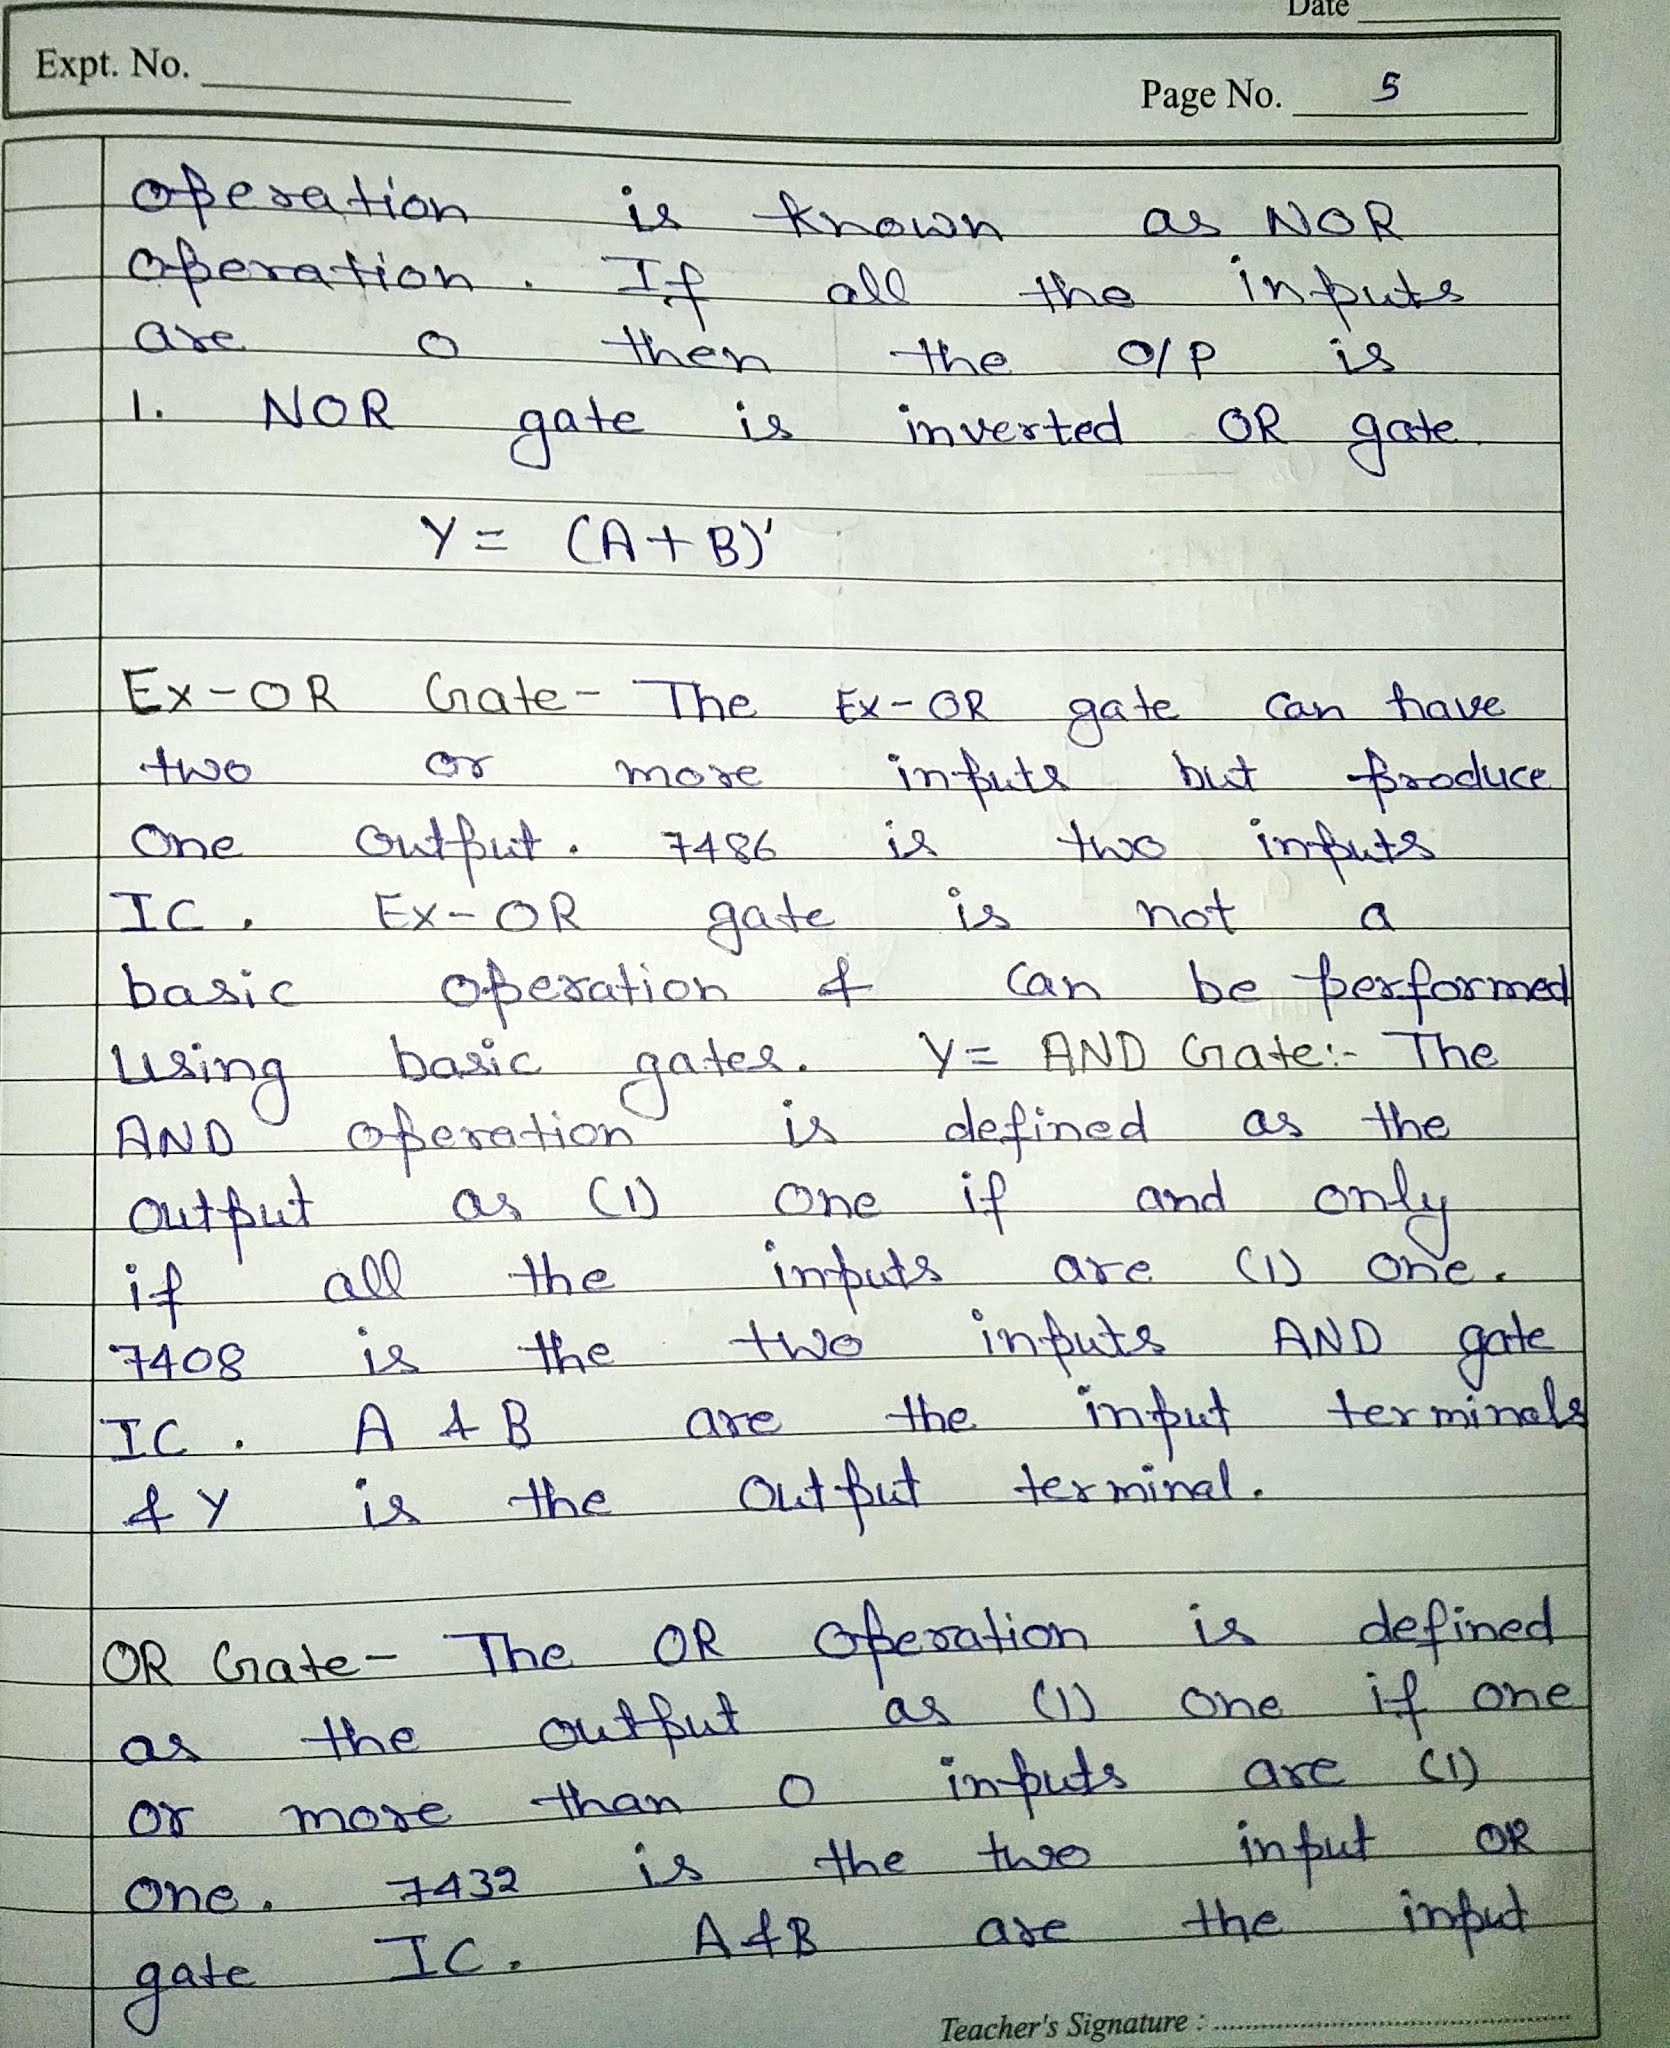 Date
Expt. No.
Page No. 5
operation is known as NOR
operation. If all the inputs
are 0 then the O/P is
1. NOR gate is inverted OR gate.
Y = (A+B)'
Ex-OR Gate- The Ex-OR gate can have
two or more inputs but produce
one output. 7486 is two inputs
IC. Ex-OR gate is not a
basic operation & can be performed
using basic gates. Y= AND Gate:- The
AND operation is defined as the
output as (1) one if and only
if all the inputs are (1) one.
7408 is the two inputs AND gate
IC. A & B are the input terminals
& Y is the output terminal.
OR Gate- The OR operation is defined
as the output as (1) one if one
or more than 0 inputs are (1)
one. 7432 is the two input OR
gate IC. A & B are the input
Teacher's Signature :